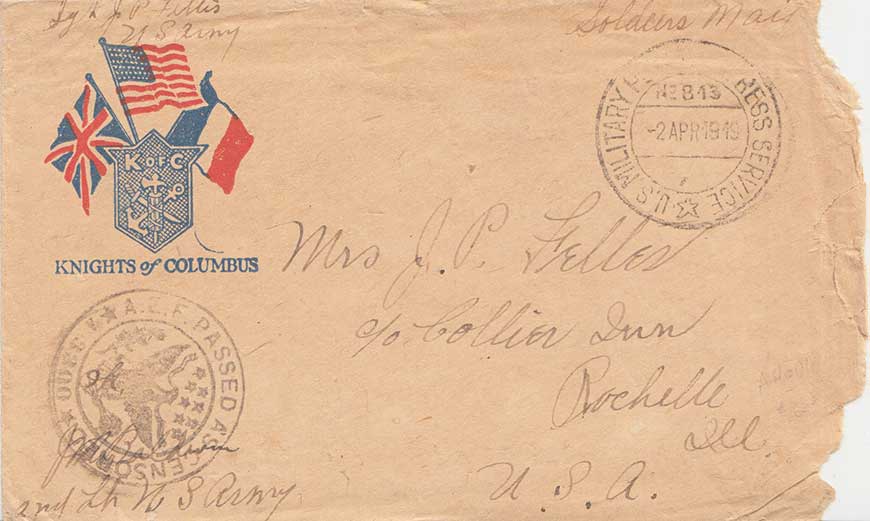 Sgt J. P. Felles
U S Army
Soldiers Mail
K OF C
KNIGHTS of COLUMBUS
U.S. MILITARY RESS SERVICE
No 813
-2APR1919
Mrs J. P. Felles
c/o Collier Inn
Rochelle
Ill.
U. S. A.
A.E.F. PASSED AS CENSORED
Ok
2nd Lt. U S Army